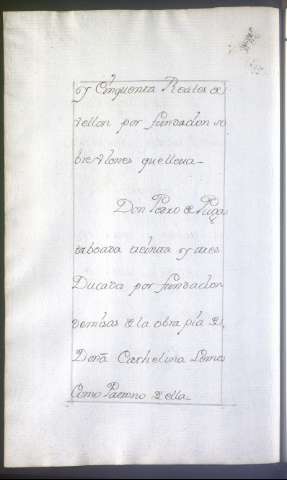 y Cinquenta Reales de
vellon por fundacion so
bre vienes que lleua
Don Pedro de Puga
taboada treinta y tres
Ducados por fundacion
de misas de la obra pía de
Doña Cathelina
Como Patrono de ella